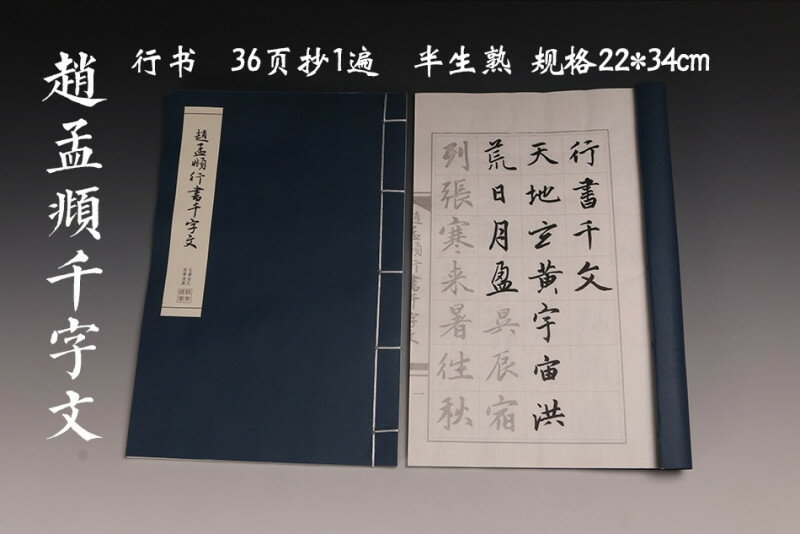 行书 36页抄1遍 半生熟 规格22*34cm
趙孟頫千字文
趙孟頫行書千字文
行書千文
天地玄黄宇宙洪
荒日月盈昃辰宿
列張寒来暑往秋
趙孟頫行書千字文
一